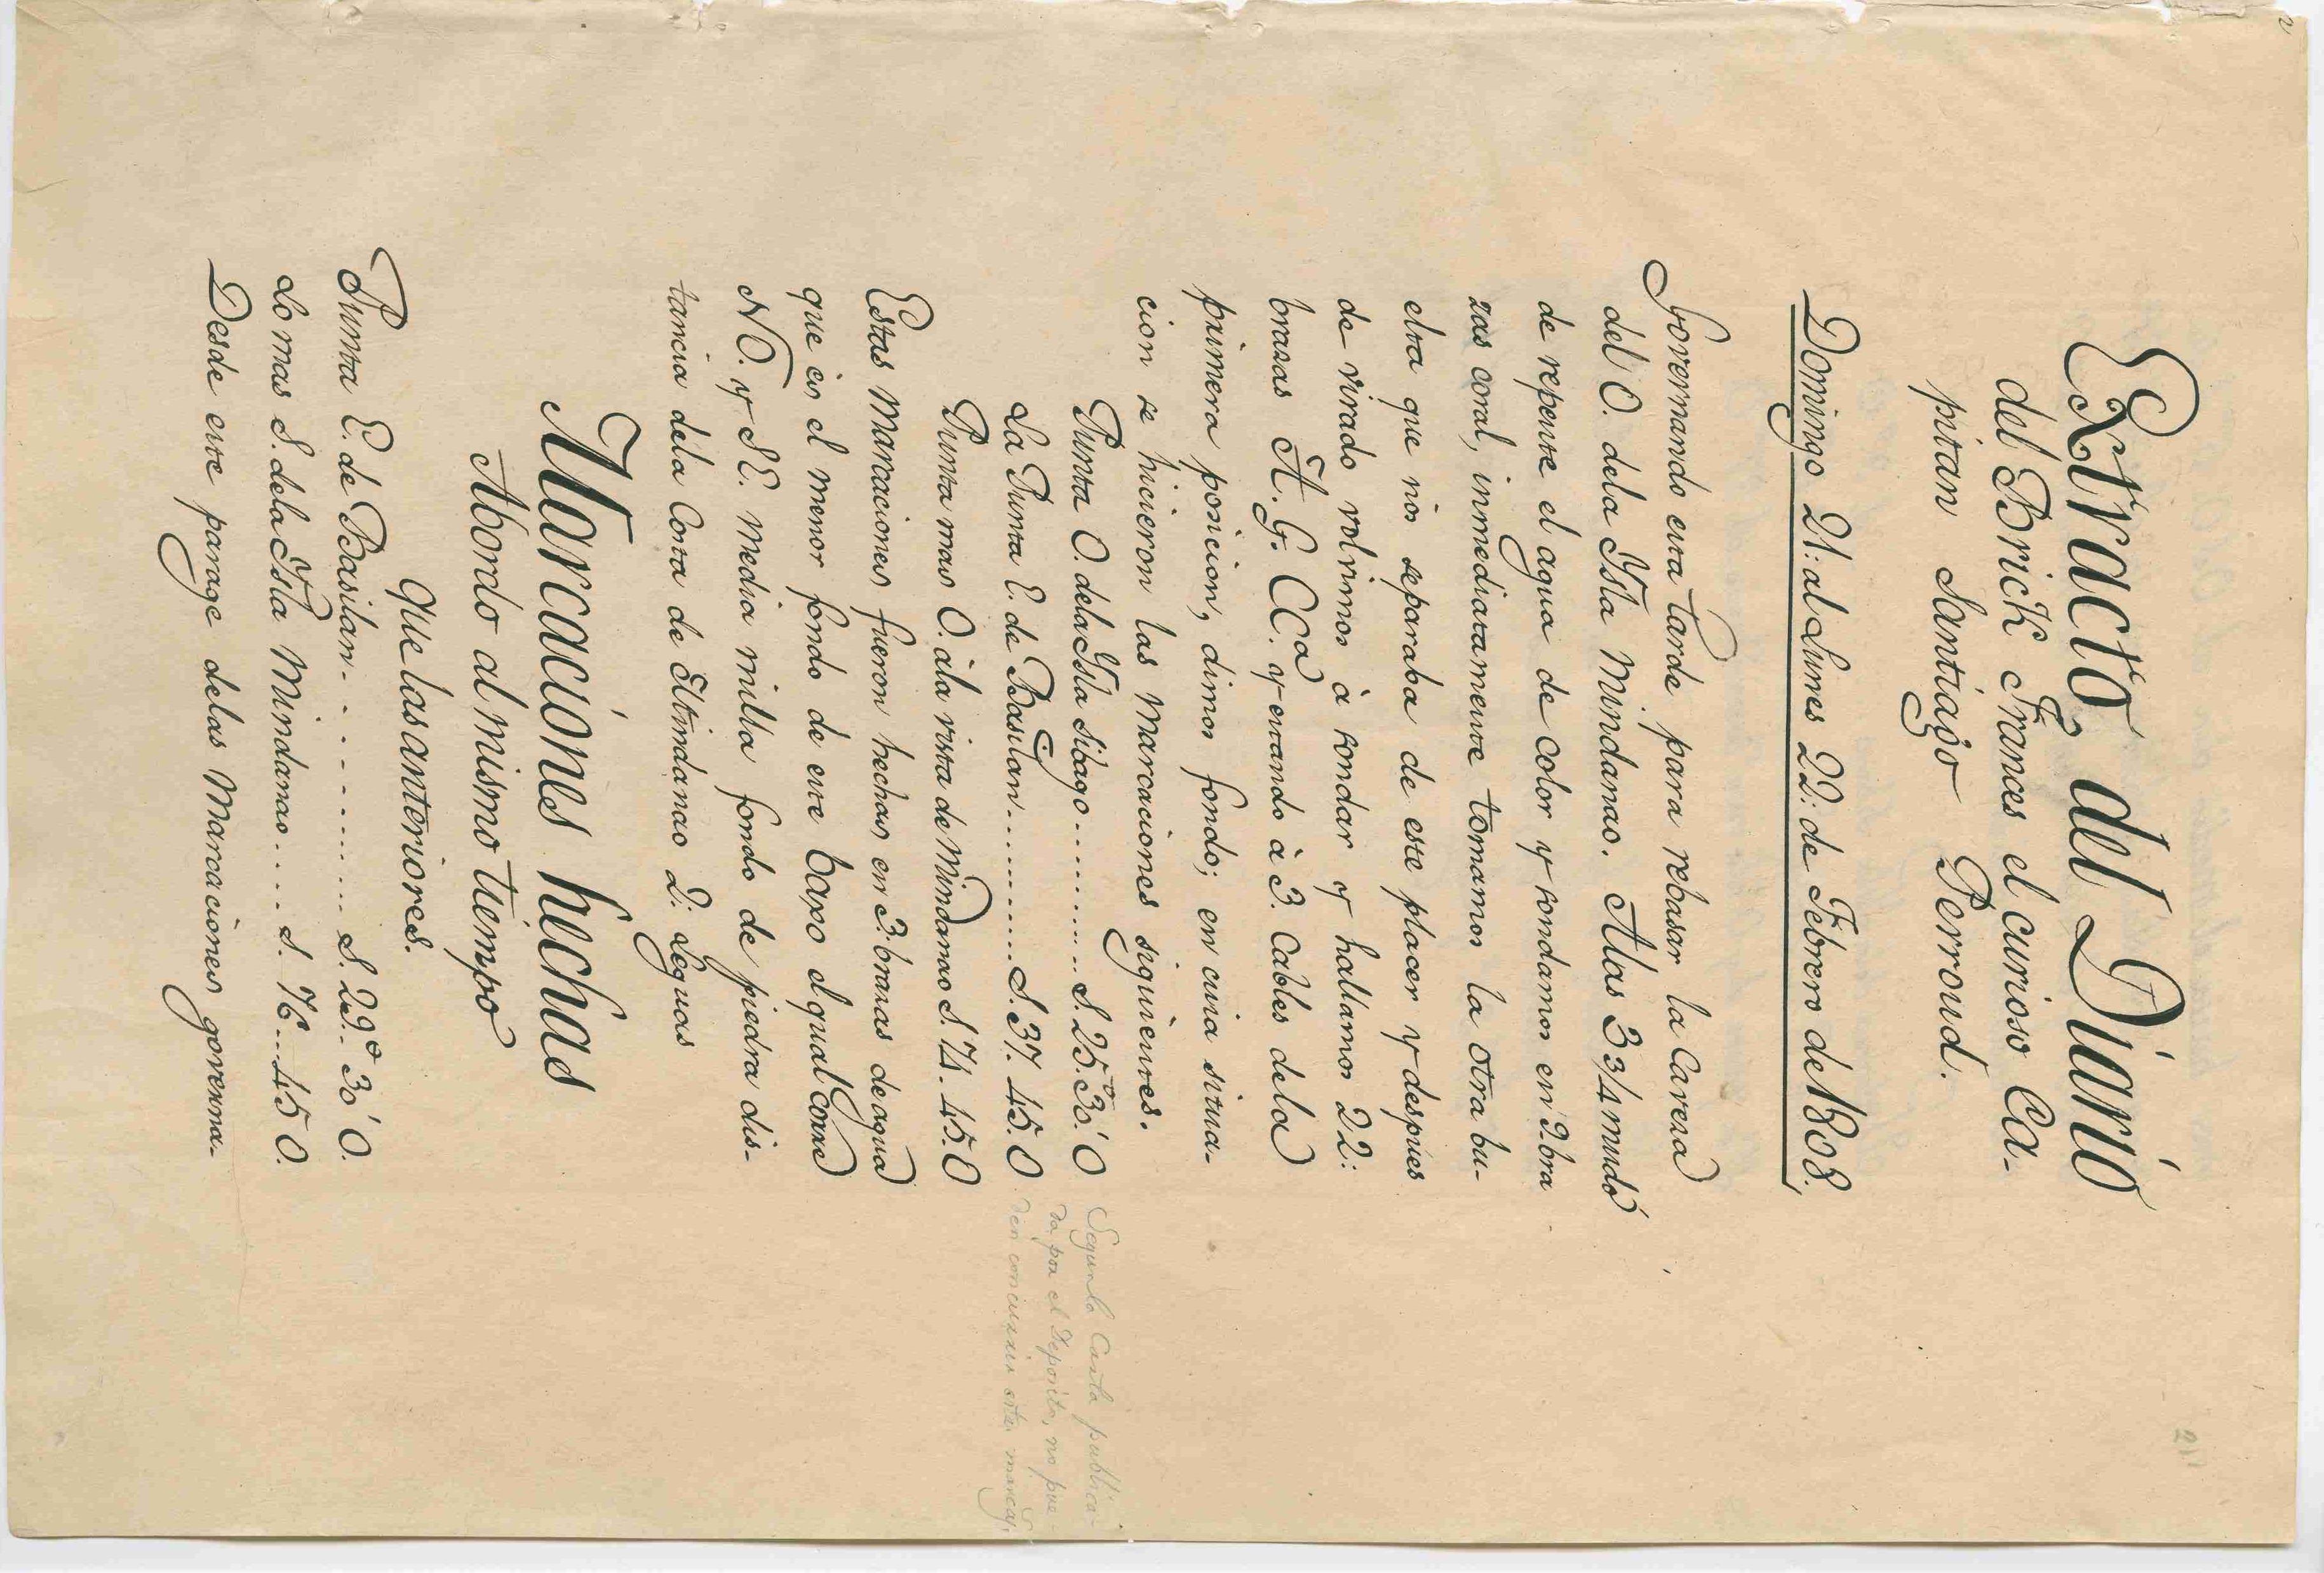 Extracto del Diario
del Brick Frances el curioso Ca-
pitan Santiago Perroud.
Domingo 21: al Lunes 22: de Febrero de 1808.
Governando esta tarde para rebasar la Caveza
del O. dela Ysla Mindanao. Alas 3 3/4 mudó
de repente el agua de color y sondamos en 9 bra
zas coral, inmediatamente tomamos la otra bu-
elta que nos separaba de este placer y despues
de virado volvimos à sondar y hallamos 22:
brazas A. G. CCa y estando à 3. Cables dela
primera posicion, dimos fondo; en cuia situa-
cion se hicieron las marcaciones siguientes.
Punta O. dela Ysla Sibago ........... S. 25.° 30.' O
La Punta E. de Basilan ........... S. 37. 45. O
Punta mas O. àla vista de Mindanao S. 74. 45. O
Estas Marcaciones fueron hechas en 3: brazas de agua
que es el menor fondo de este baxo el qual corre
NO. y SE. media milla fondo de piedra dis-
tancia dela Costa de Mindanao 2: Leguas
Marcaciones hechas
Abordo al mismo tiempo
que las anteriores.
Punta E. de Basilan ........... S. 29.° 30' O.
Lo mas S. dela Ysla Mindanao .... S. 76 .. 45 O.
Desde este parage delas Marcaciones governa-
Segun la Carta publica-
da por el Deposito, no pue-
den concurrir estas marcac.
21